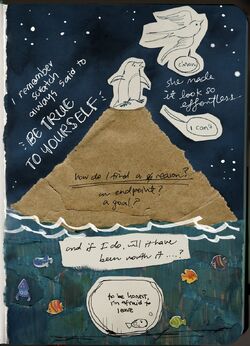 I remember
always said to
BE TRUE
TO YOURSELF
c'mon
she made
it look so
effortless
I can't
how do I find a reason?
an endpoint?
a goal?
and if I do, will it have
been worth it ....?
to be honest,
i'm afraid to
leave